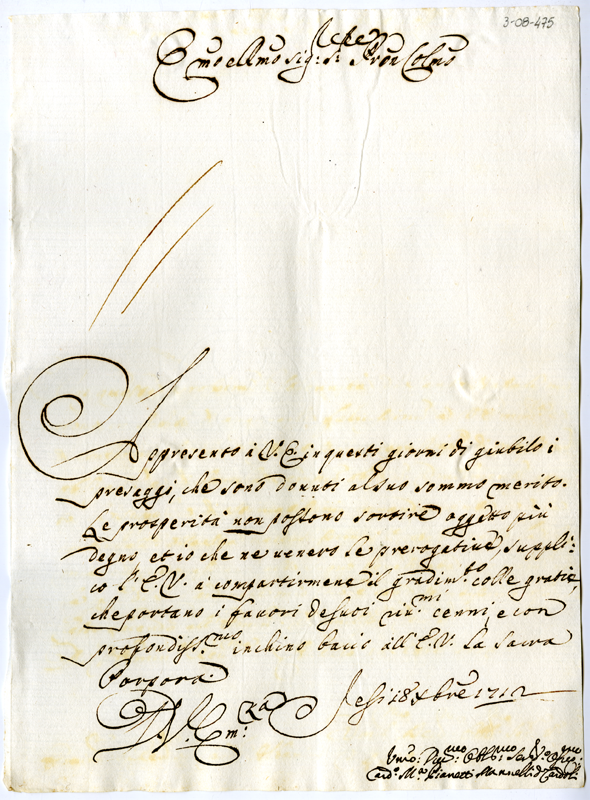 3-08-475
Em̃o e Rm̃o Sig.r Sig.r Pron Colm̃o
Appresento à V.E. in questi giorni di giubilo i
presaggi, che sono douuti al suo sommo merito.
Le prosperità non possono sortire oggetto più
degno et io che ne uenero le prerogatiue, suppli-
co l'E.V. à compartirmene il gradim.to colle gratie,
che portano i fauori de suoi riu.mi cenni, e con
profondiss.mo inchino bacio all'E.V. la Sacra
Porpora.
D. V. Em.za Jesi 18 Xbre 1712
Um̃o: Obb:
Manuelli